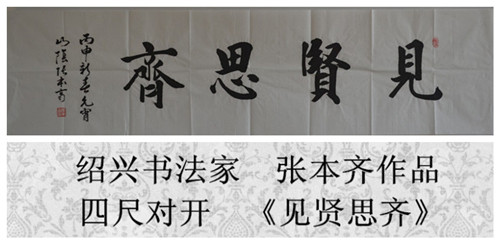 見賢思齊
丙申新春元宵
山陰張本齊
绍兴书法家 张本齐作品
四尺对开 《见贤思齐》